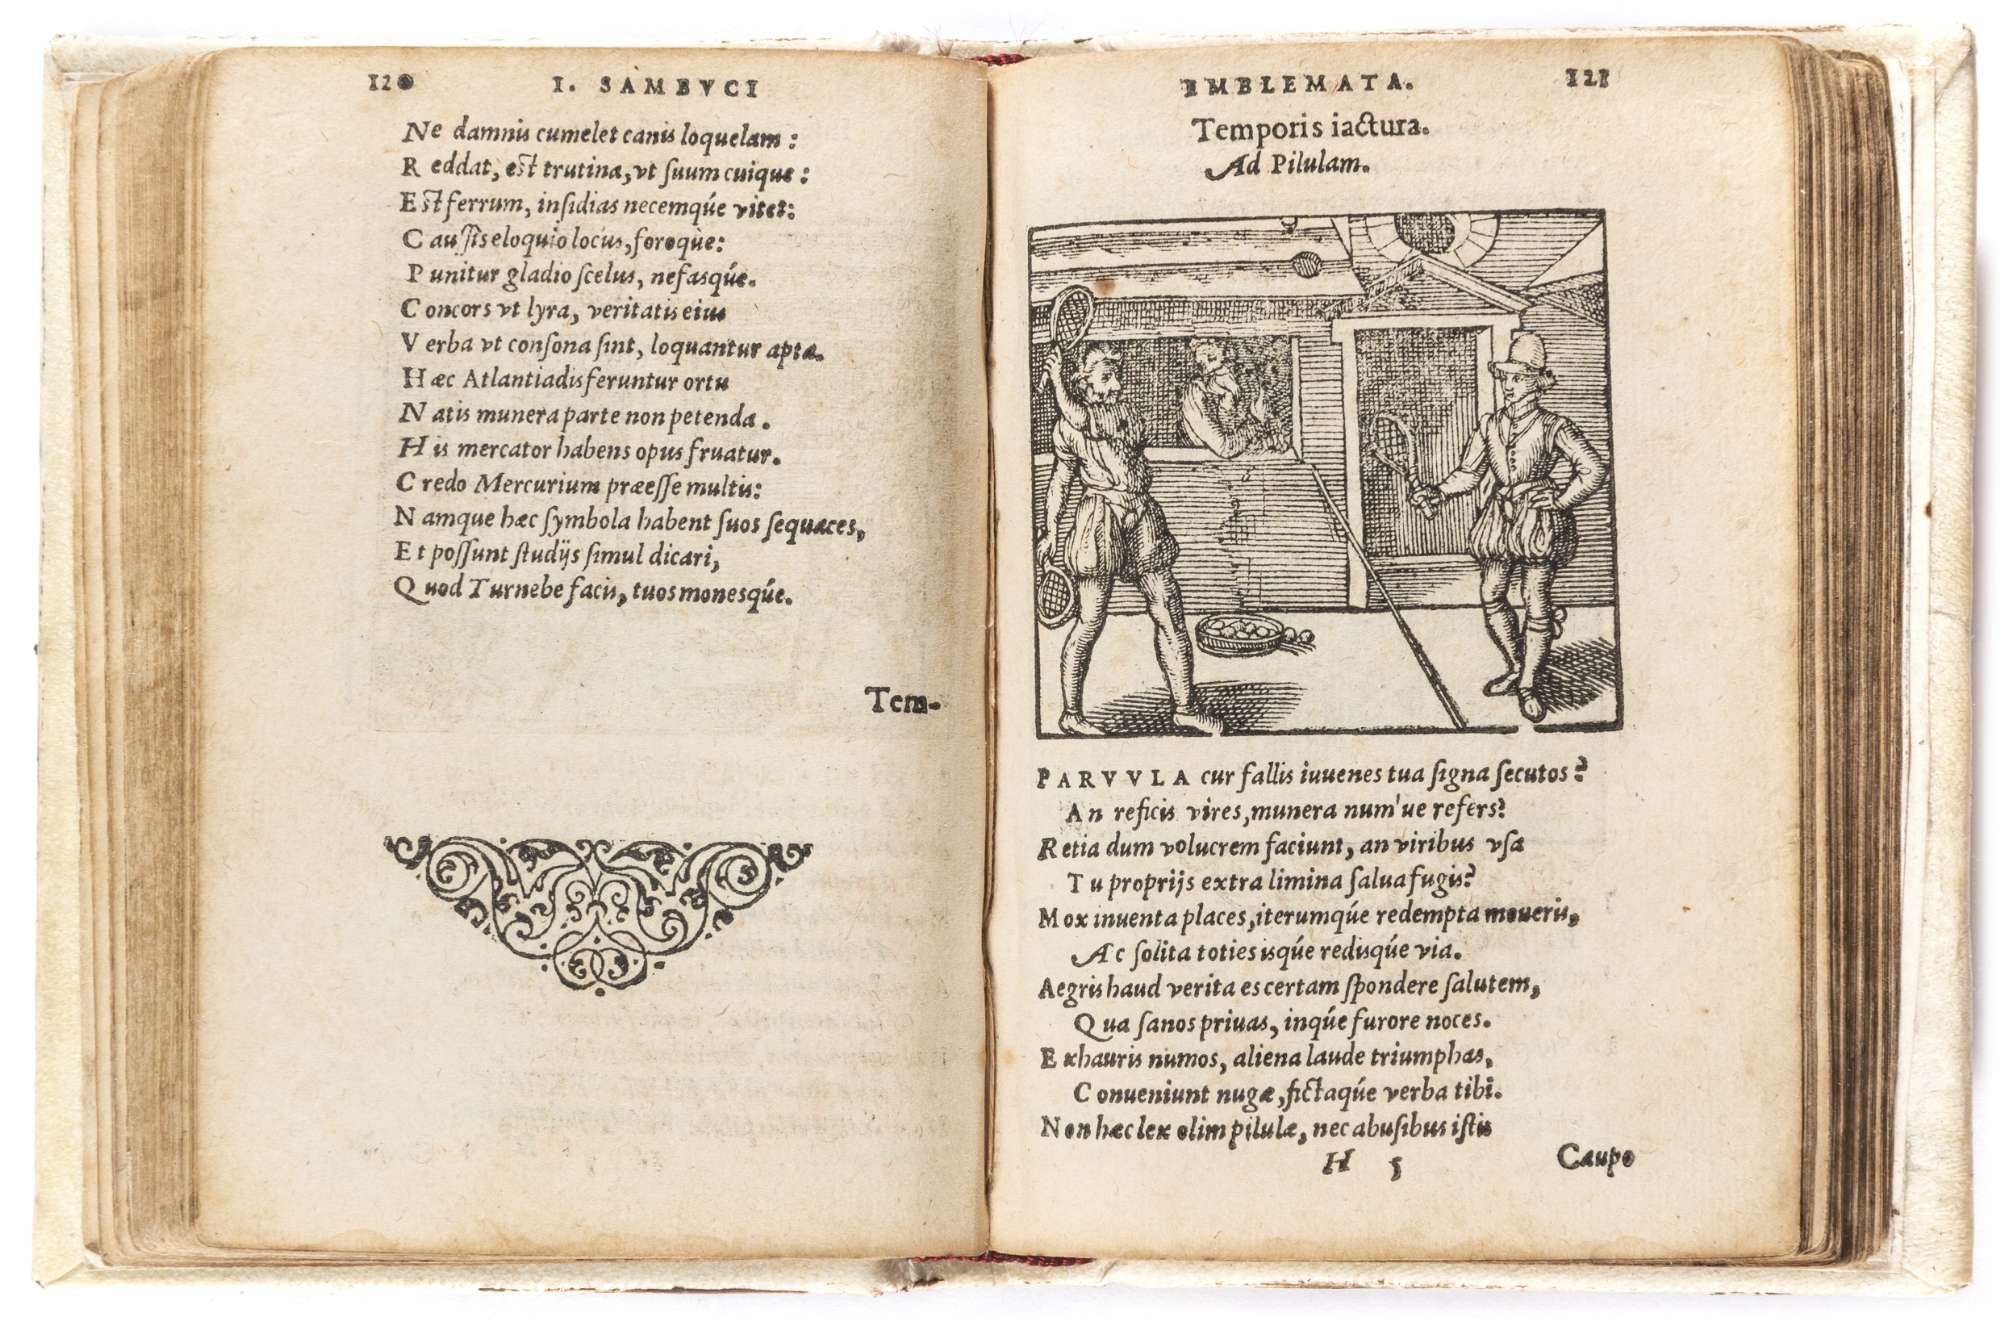 120 I. SAMBVCI
Ne damnis cumelet canis loquelam:
Reddat, est trutina, vt ſuum cuique:
Est ferrum, inſidias necemqúe vitet:
Cauſſis eloquio locus, foroqùe:
Punitur gladio ſcelus, nefasqúe.
Concors vt lyra, veritatis eius
Verba vt conſona ſint, loquantur aptæ.
Hæc Atlantiadis feruntur ortu
Natis munera parte non petenda.
His mercator habens opus fruatur.
Credo Mercurium præeſſe multis:
Namque hæc ſymbola habent ſuos ſequaces,
Et poſſunt ſtudijs ſimul dicari,
Quod Turnebe facis, tuos monesqúe.
Tem-
EMBLEMATA. 121
Temporis iactura.
Ad Pilulam.
PARVVLA cur fallis iuuenes tua ſigna ſecutos?
An reficis vires, munera num'ue refers?
Retia dum volucrem faciunt, an viribus vſa
Tu proprijs extra limina ſalua fugis?
Mox inuenta places, iterumqúe redempta moueris,
Ac ſolita toties isqúe redisqúe via.
Aegris haud verita es certam ſpondere ſalutem,
Qua ſanos priuas, inqúe furore noces.
Exhauris numos, aliena laude triumphas,
Conueniunt nugæ, fictaqúe verba tibi.
Non hæc lex olim pilulæ, nec abuſibus iſtis
H 5 Caupo